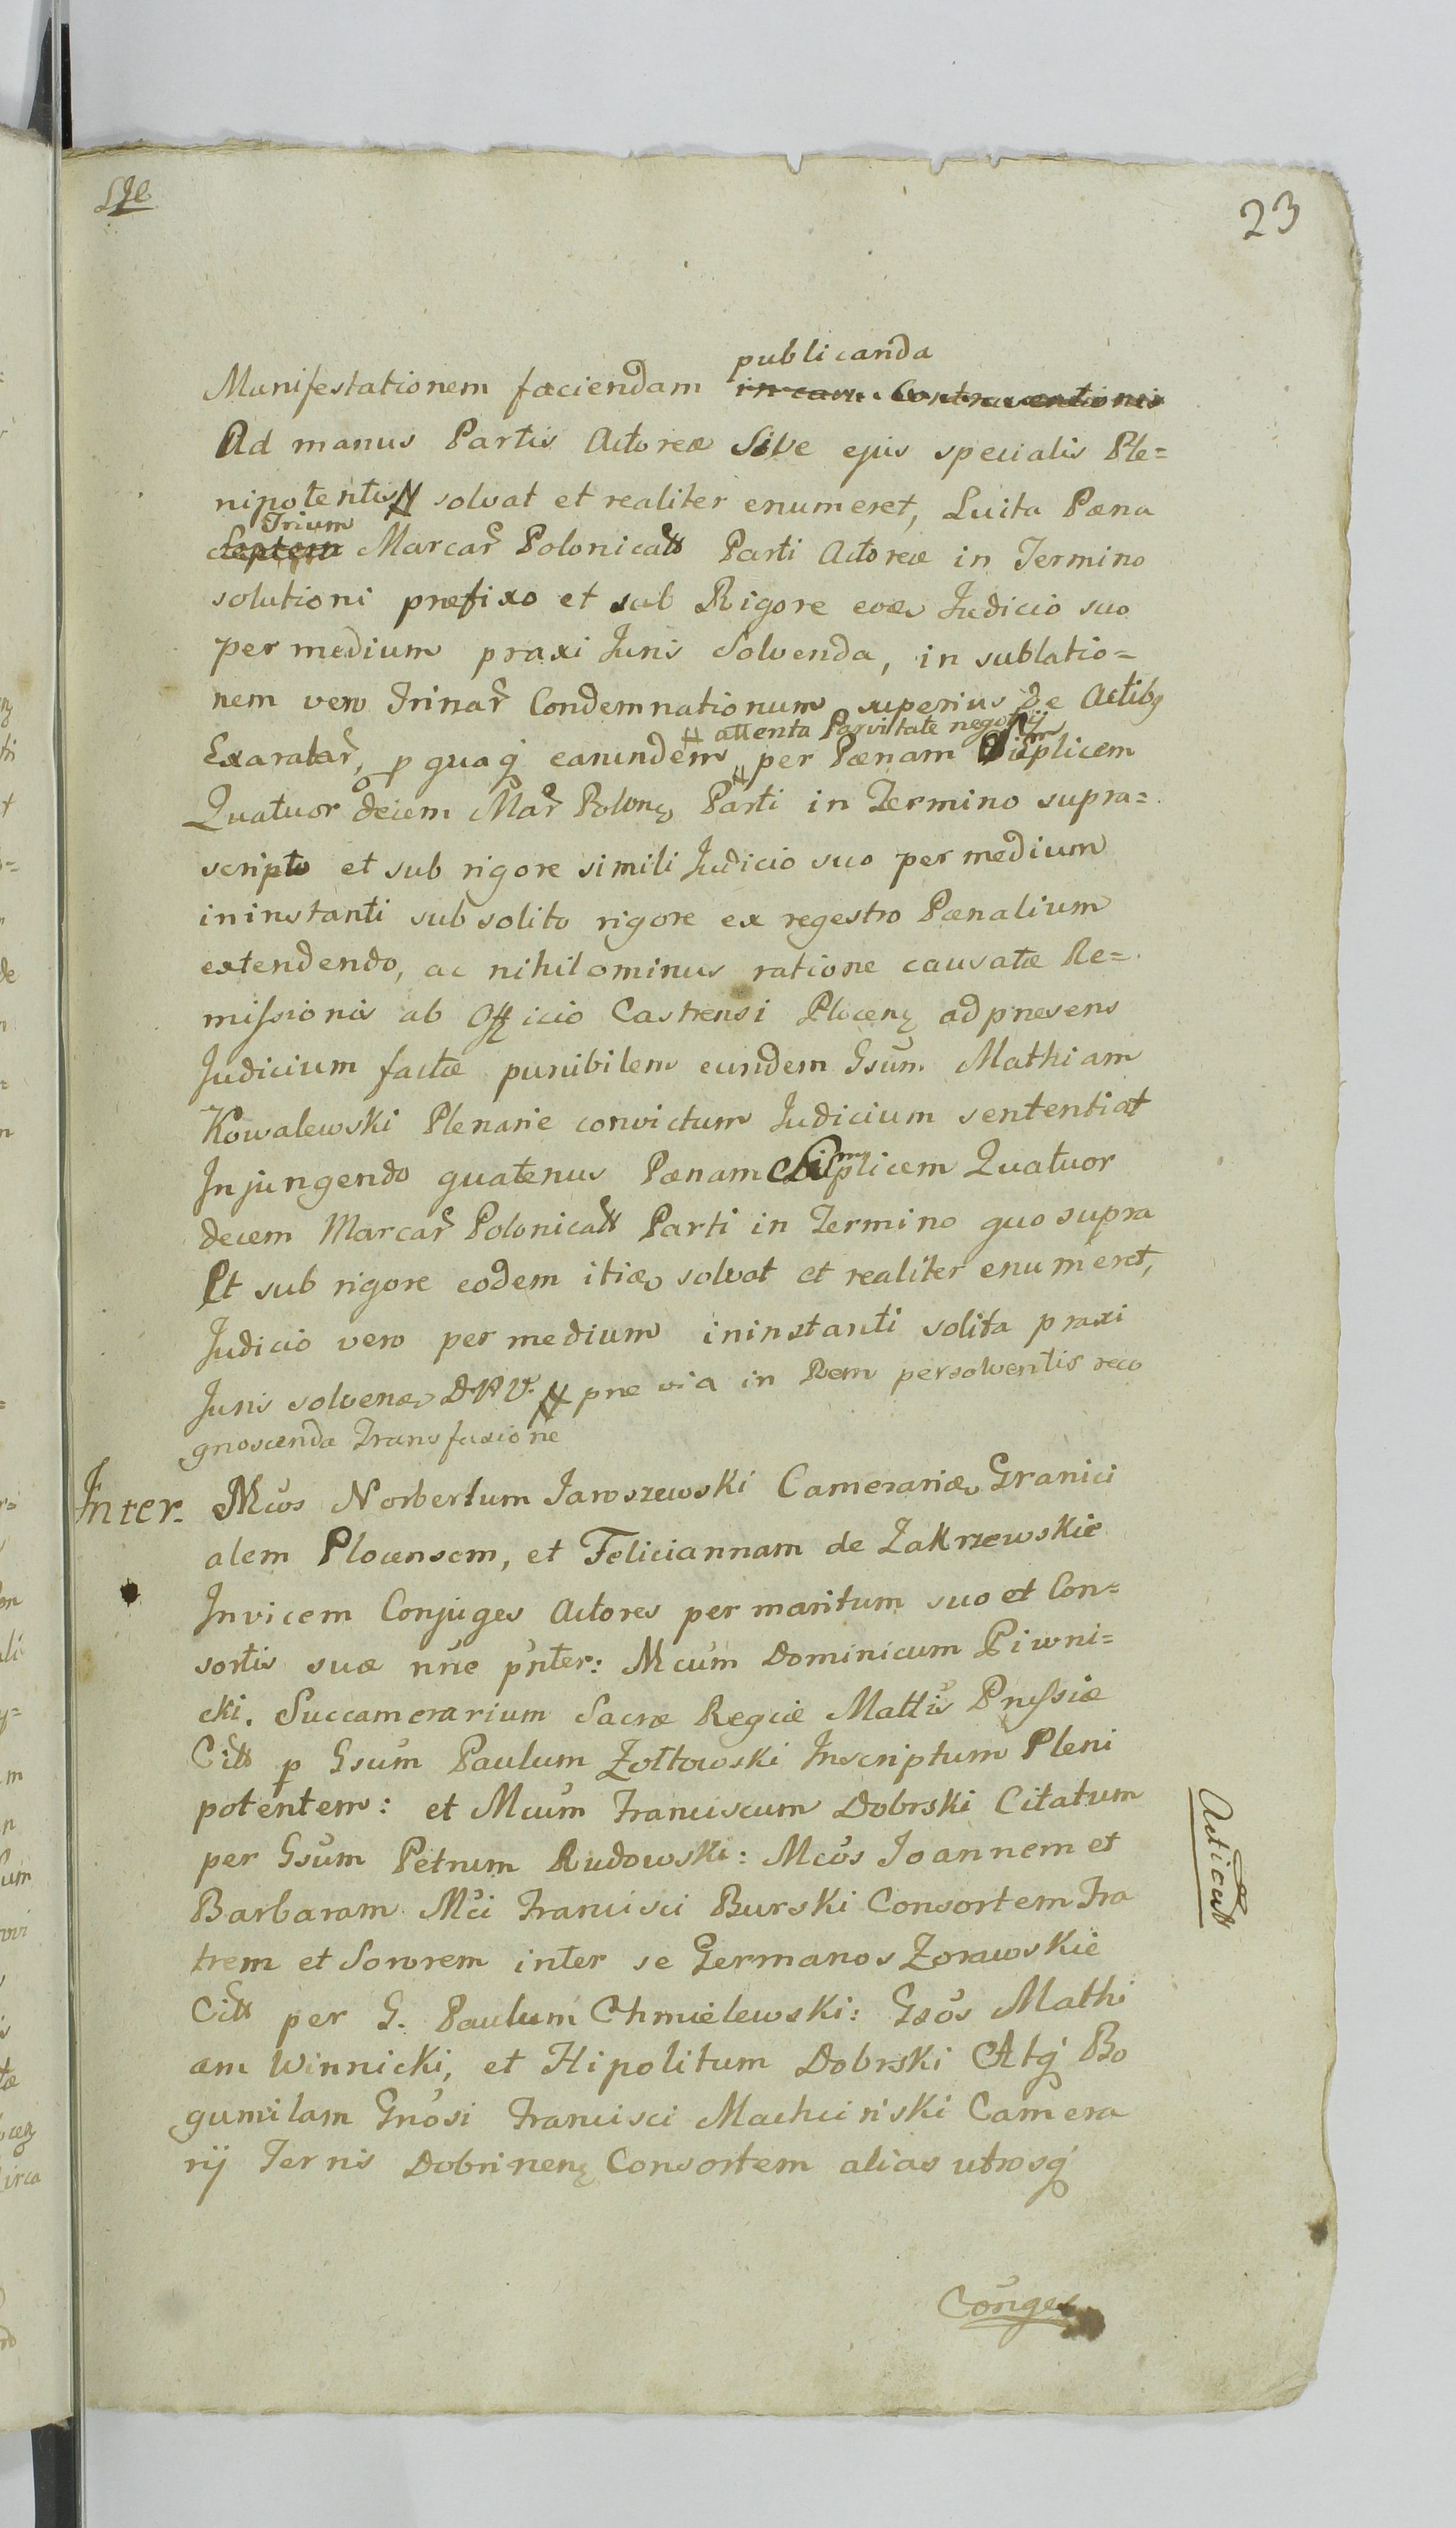 23
publicanda
Manifestationem faciendam in casu Contraventionis
Ad manus Partis Actoreæ Sive ejus specialis Ple=
nipotentis solvat et realiter enumeret, Luita Pæna
Trium
Septem Marcar Polonical Parti Actoreæ in Termino
solutioni præfixo et sub Rigore eod Judicio suo
per medium praxi Juris Solvenda, in sublatio=
nem vero Trinar Condemnationum superius de Actibꝫ
# attenta Parvitate negotij
Exaratar, p quaq earundem # per Pænam Simplicem
Quatuor decem Mar Polonꝫ Parti in Termino supra=
scripto et sub rigore simili Judicio suo per medium
ininstanti sub solito rigore ex regestro Pænalium
extendendo, ac nihilominus ratione causatæ Re=
missionis ab Officio Castrensi Plocenꝫ ad præsens
Judicium factæ punibilem eundem Gsum Mathiam
Kowalewski Plenarie convictum Judicium sententiat
Injungendo quatenus Pænam Simplicem Quatuor
decem Marcar Polonical Parti in Termino quo supra
Et sub rigore eodem itid solvat et realiter enumeret,
Judicio vero per medium ininstanti solita praxi
Juris solvend D.P.V. præ via in Rem persolventis reco
gnoscenda Transfusione
Inter. Mcos Norbertum Jaroszewski Camerariu Granici
alem Plocensem, et Feliciannam de Zakrzewskie
Invicem Conjuges Actores per maritum suo et Con=
sortis suæ nne pnter: Mcum Dominicum Piwni=
cki. Succamerarium Sacræ Regiæ Mattis Prussiæ
Citt p Gsum Paulum Zołtowski Inscriptum Pleni
potentem: et Mcum Franciscum Dobrski Citatum
per Gsum Petrum Rudowski: Mcos Joannem et
Barbaram Mci Francisci Burski Consortem Fra
trem et Sororem inter se Germanos Zorawskie
Citt per G. Paulum Chmielewski: Gsos Mathi
am Winnicki, et Hipolitum Dobrski Atq Bo
gumilam Gnosi Francisci Machciński Camera
rij Terris Dobrinenꝫ Consortem alias utrosq
Conges
Acticat